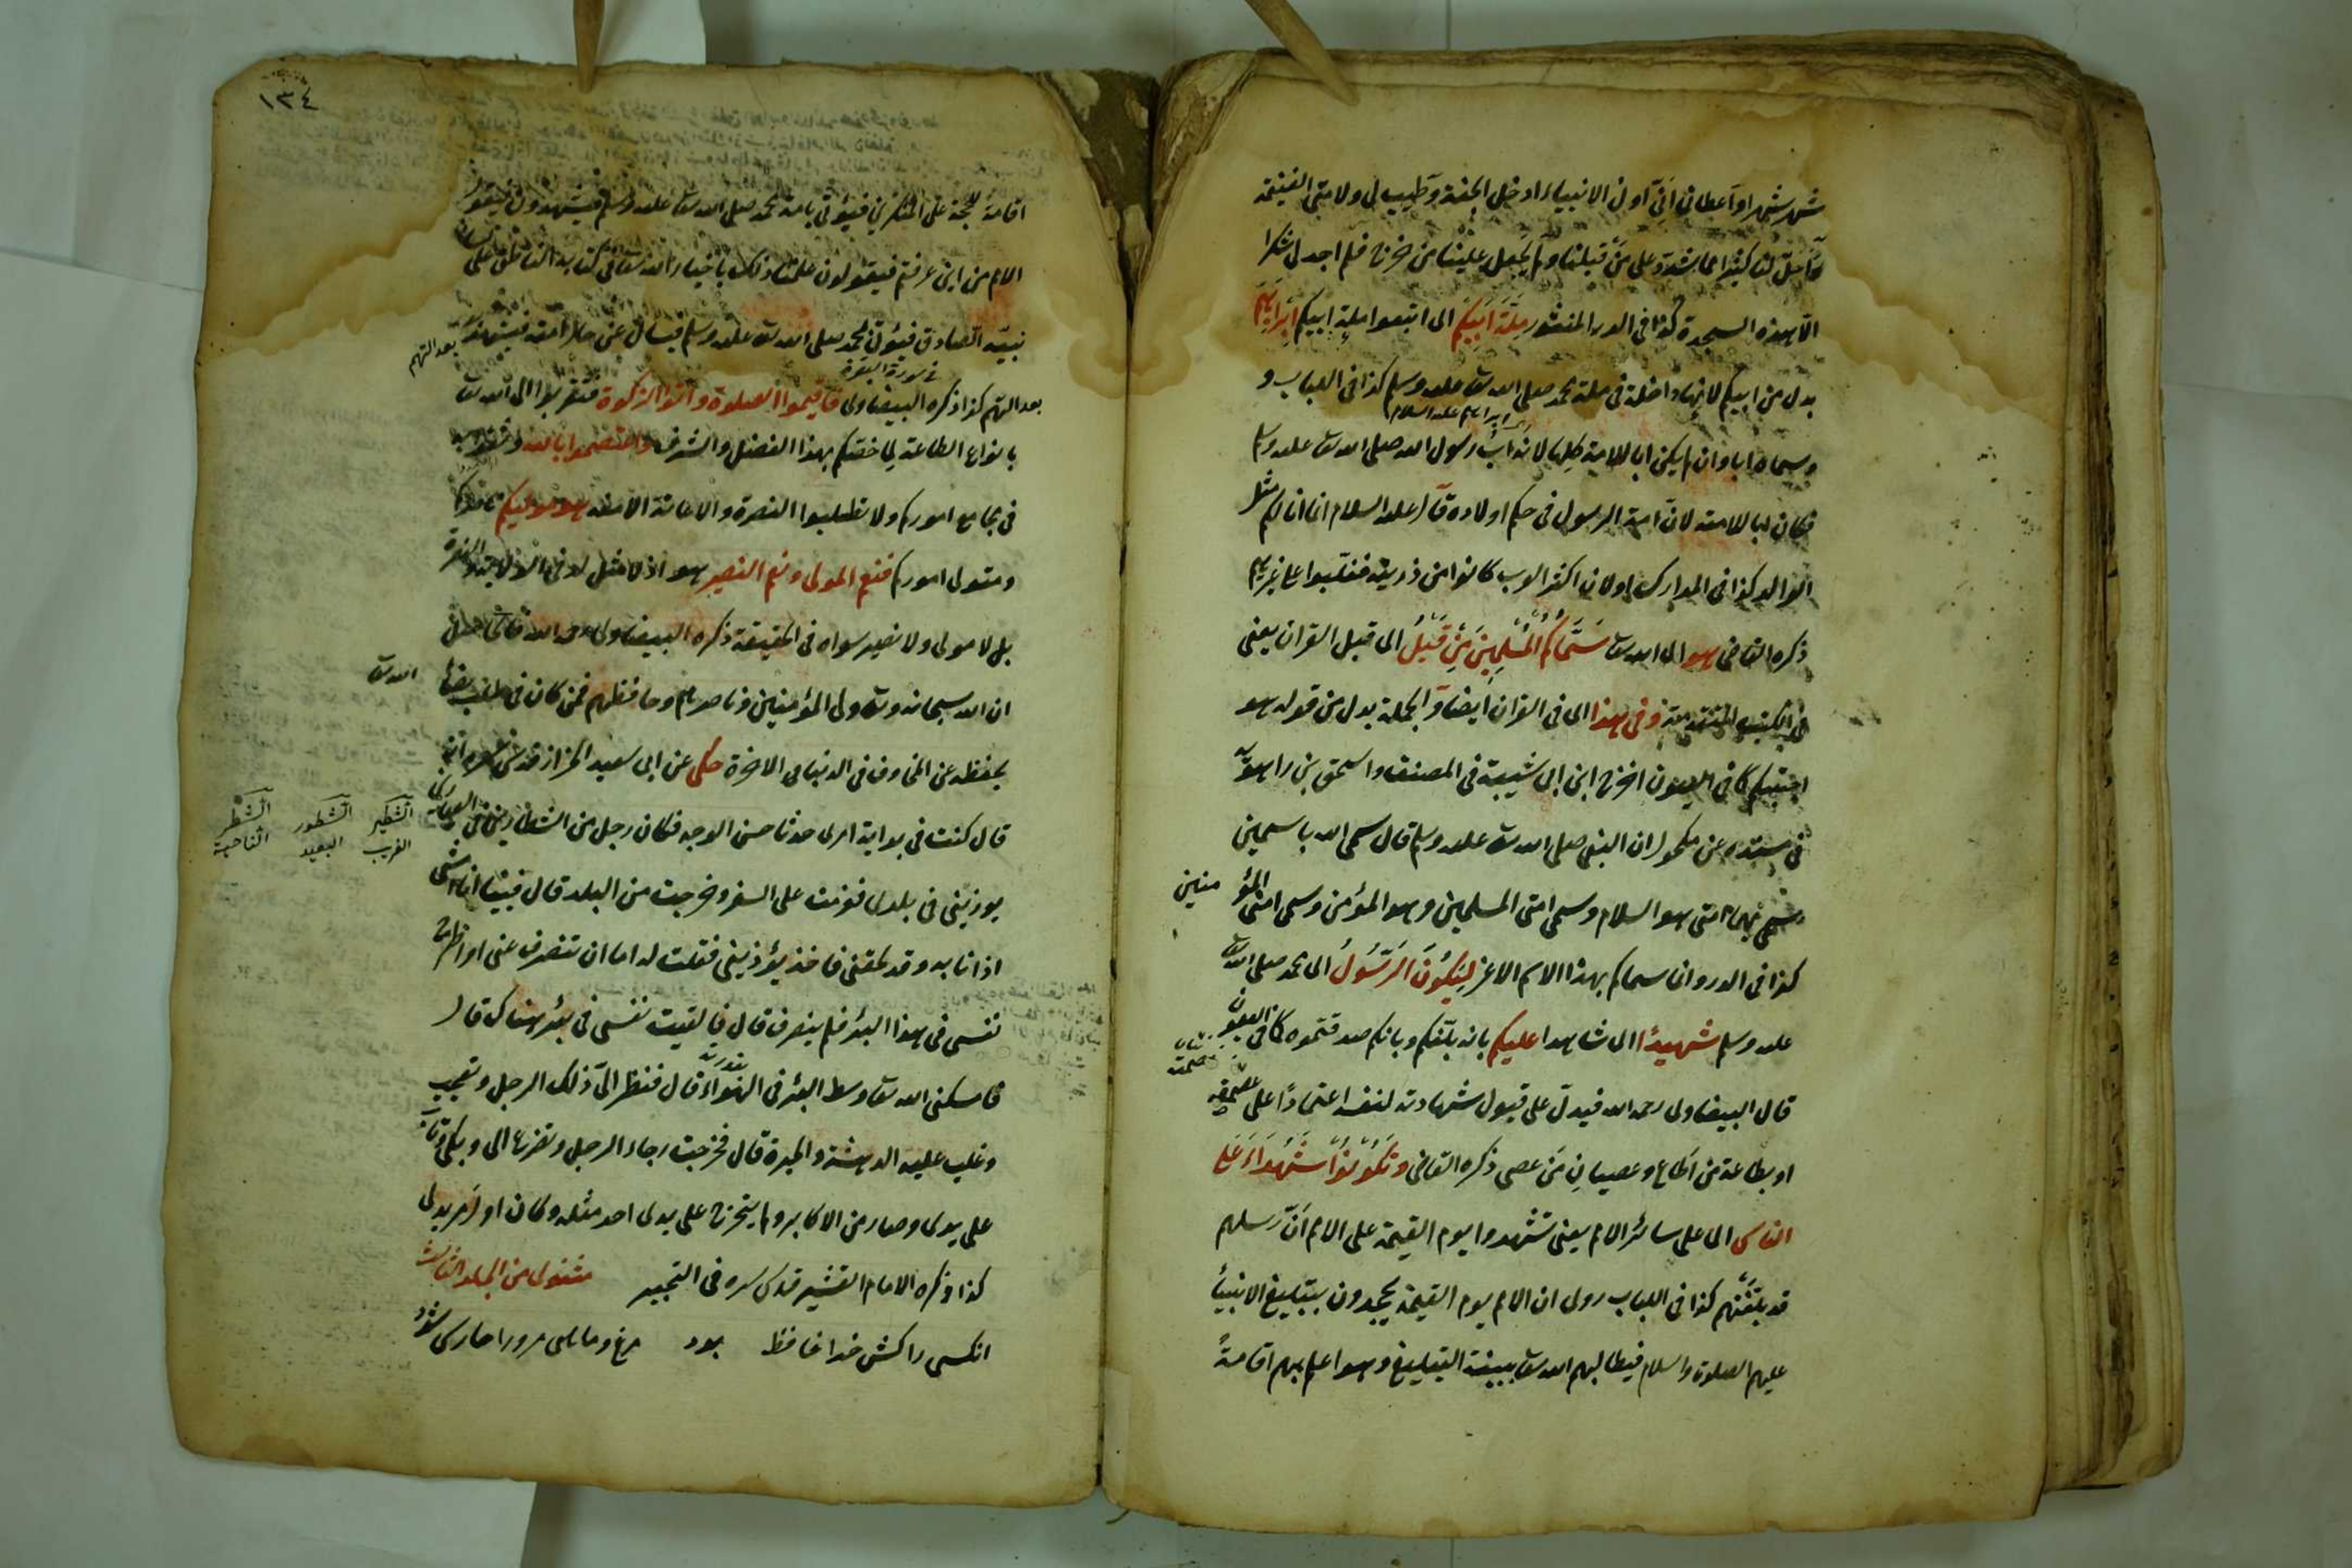 شهر شهرا واعطانی انی اول الانبیاء ادخل الجنة وطیب لی ولامتی الغنیمة
واحل لنا کثیرا مما شدد علی من قبلنا ولم یجعل علینا من حرج فلم اجد لی شکرا
الا هذه السجدة کذا فی الدر المنثور ملة ابیکم ای اتبعوا ملة ابیکم ابراهیم
بدل من ابیکم لانها داخلة فی ملة محمد صلی الله تعا علیه وسلم کذا فی اللباب و
ای ابراهیم علیه السلام
وسماه ابا وان لم یکن ابا للامة کلها لانه اب رسول الله صلی الله تعا علیه وسلم
فکان ابا للامته لان امة الرسول فی حکم اولاده قال علیه السلام انما انا لکم مثل
الوالد کذا فی المدارک اولان اکثر العرب کانوا من ذریته فغلبوا علی غیرهم
ذکره القاضی هو ای الله تعا سماکم المسلمین من قبل ای قبل القران یعنی
فی الکتب المتقدمة وفی هذا ای فی القران ایضا والجملة بدل من قوله هو
اجتبیکم کما فی العیون اخرج ابن ابی شیبة فی المصنف واسحق بن راهویه
فی مسنده عن مکحول ان النبی صلی الله تعا علیه وسلم قال سمی الله باسمین
سمی بهما امتی هو السلام وسمی امتی المسلمین وهو المؤمن وسمی امتی المؤمنین
کذا فی الدر وانما سماکم بهذا الاسم الاعز لیکون الرسول ای محمد صلی الله تعا
علیه وسلم شهیدا ای شاهدا علیکم بانه بلغکم وبانکم صدقتموه کما فی العیون
قال البیضاوی رحمه الله فیدل علی قبول شهادته لنفسه اعتمادا علی عصمته
او بطاعة من اطاع وعصیان من عصی ذکره القاضی وتکونوا شهداء علی
الناس ای علی سائر الامم یعنی تشهدوا یوم القیمة علی الامم ان رسلهم
قد بلغتهم کذا فی اللباب روی ان الامم یوم القیمة یجحدون بتبلیغ الانبیاء
علیهم الصلوة والسلام فیطالبهم الله تعا ببینة التبلیغ وهو اعلم بهم اقامة
١٣٤
اقامة للحجة علی المنکرین فیؤتی بامة محمد صلی الله تعا علیه وسلم فیشهدون فیقول
الامم من این عرفتم فیقولون علمنا ذلک باخبار الله تعا فی کتابه الناطق علی لسان
نبیه الصادق فیؤتی بمحمد صلی الله تعا علیه وسلم فیسال عن حال امته فیشهد
بعدالتهم
فی سورة البقرة
بعدالتهم کذا ذکره البیضاوی فاقیموا الصلوة واتوا الزکوة فتقربوا الی الله تعا
بانواع الطاعة لما خصکم بهذا الفضل والشرف واعتصموا بالله وثقوا به
فی مجامع امورکم ولا تطلبوا النصرة والاعانة الا منه هو مولیکم ناصرکم
ومتولی امورکم فنعم المولی ونعم النصیر هو اذ لا مثل له فی الولایة والنصرة
بل لا مولی ولا نصیر سواه فی الحقیقة ذکره البیضاوی رحمه الله
ان الله سبحانه وتعا ولی المؤمنین وناصرهم وحافظهم فمن کان فی
الله تعا
یحفظه عن المخاوف فی الدنیا و الاخرة حکی عن ابی سعید الخراز قدس سره انه
قال کنت فی بدایة امری حدثا حسن الوجه فکان رجل من الشطار
الشکیر الشطور الشطر
القریب البعید الناحیة
یوذینی فی بلدی فعزمت علی السفر وخرجت من البلد قال فبینا انا امشی
اذ انا به وقد لحقنی فاخذ یؤذینی فقلت له اما ان تنصرف عنی او اطرح
نفسی فی هذا البئر فلم ینصرف قال فالقیت نفسی فی بئر هناک قال
بقدرته
فامسکنی الله تعا وسط البئر فی الهواء قال فنظر الی ذلک الرجل وتعجب
وغلب علیه الدهشة والحیرة قال فخرجت رجاء الرجل وتضرع الی وبکی وتاب
علی یدی وصار من الاکابر ولم یتخرج علی یدی احد مثله وکان اول مریدی
کذا ذکره الامام القشیری قدس سره فی التحبیر مثنوی من الجلد الثالث
انکسی را کش خدا حافظ بود مرغ و ماهی مرورا حارس شود